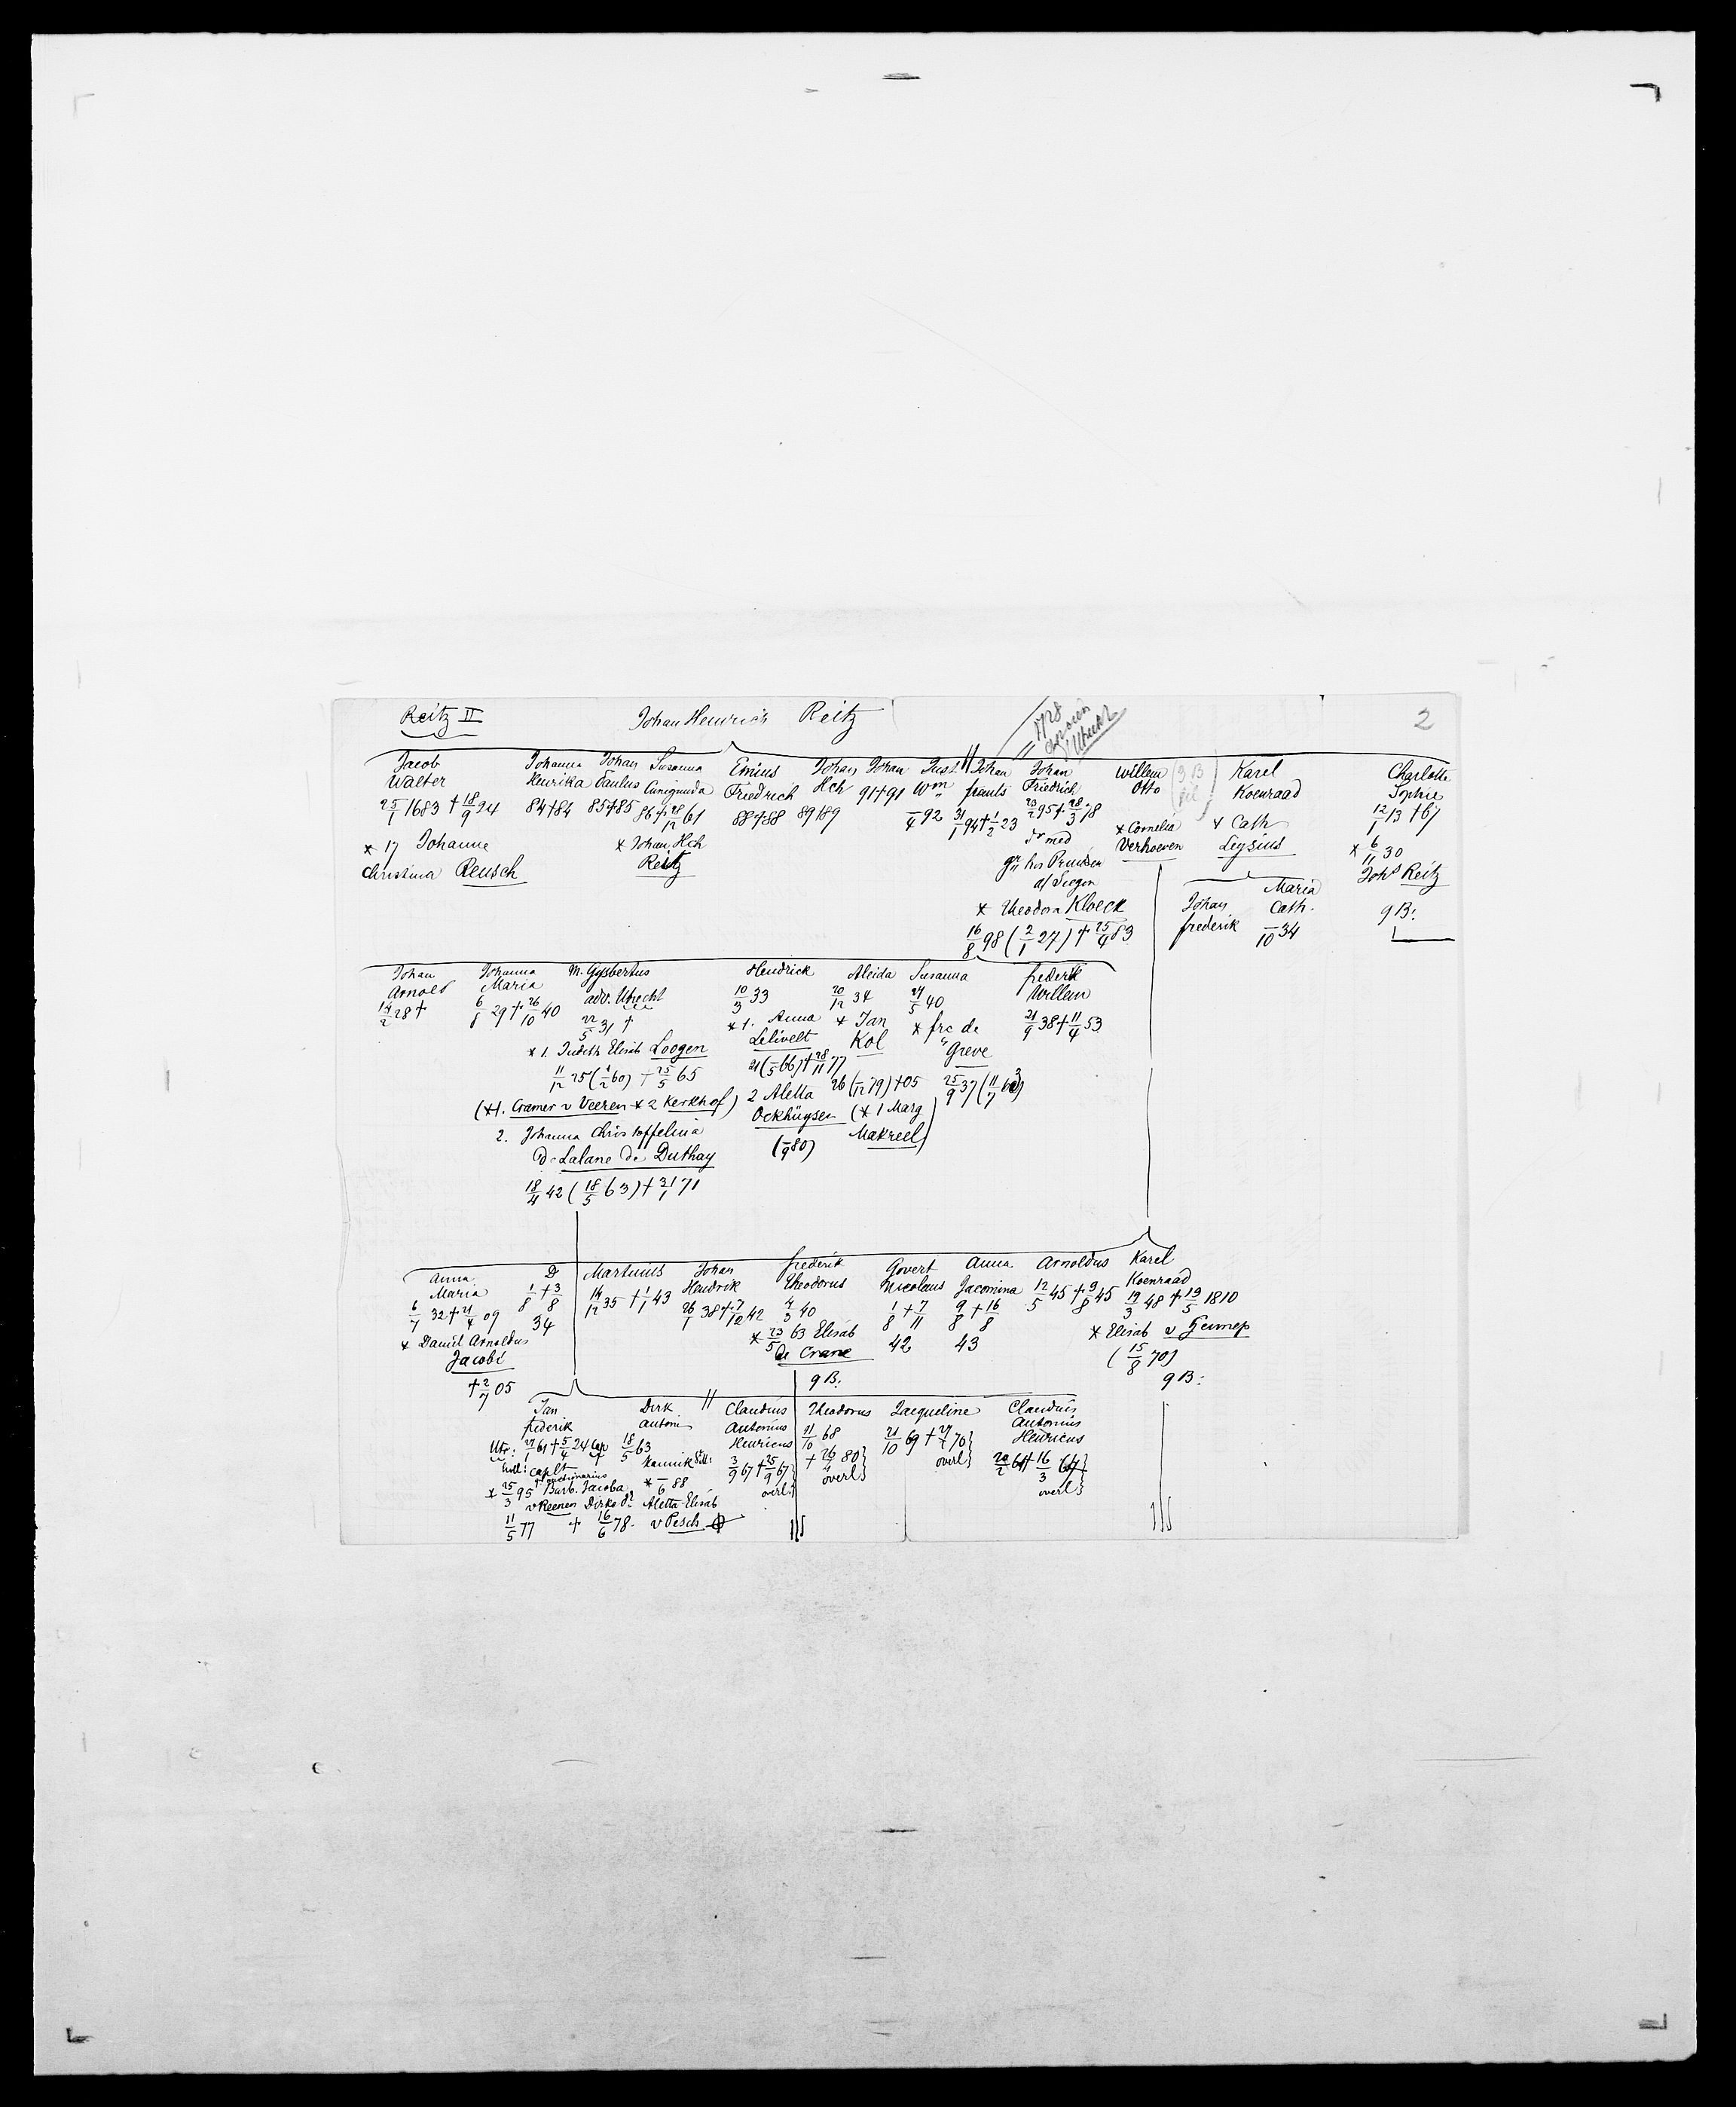 Reitz II
Johan Heinrich Reitz
2
1728
Utrecht
Jacob
Walter
25/1 1683 † 18/9 24
* 17 Johanne
Christina Reusch
Johanna
Henrika
84†84
Johan
Paulus
85†85
Susanna
Cunigunda
86 † 28/12 61
* Johan Hch
Reitz
Friedrich
88†88
Johan
Hch
89†89
Johan
91†91
Just.
Wm
/4 92
Johan
frants
31/1 94 † 1/2 23
Johan
Friedrich
23/2 95 † 28/3 78
dr med
a/ Siegen
* Theodora Kloeck
16/8 98 (2/1 27) † 25/4 83
Willem
Otto
* Cornelia
Verhoeven
Karel
Koenraad
* Cath
Leysius
Johan
frederik
Maria
Cath.
/10 34
Charlotte
Sophie
12/1 13 † 67
* 6/11 30
Johs Reitz
9 B:
Johan
Arnold
14/2 28 †
Johanna
Maria
6/8 29 † 26/10 40
M. Gysbertus
adv. Utrecht
22/5 31 †
* 1. Judith Elisab Loogen
11/12 25 (1/2 60) † 25/5 65
(*1. Cramer v Veeren * 2 Kerkhof)
2. Johanna Christoffelina
De Lalane de Duthay
18/4 42 (18/5 63) † 21/1 71
Hendrick
10/3 33
* 1. Anna
Lelivelt
21 (/5 66) † 28/11 77
2 Aletta
Ockhüysen
(/9 80)
Aleida
20/12 34
* Jan
Kol
26 (/12 79) † 05
(* 1 Marg
Makreel)
Susanna
27/5 40
* frc de
Greve
25/9 37 (11/7 63)
frederik
Willem
21/9 38 † 11/4 53
Anna
Maria
6/7 32 † 21/4 09
* Daniel Arnoldus
Jacobi
† 2/7 05
D
1/8 † 3/8
34
Martinus
14/12 35 † 1/1 43
Johan
Hendrik
26/1 38 † 7/12 42
frederik
Theodorus
4/3 40
* 23/5 63 Elisab
de Crane
9 B:
Govert
Nicolaus
1/8 † 7/11
42
Anna
Jacomina
9/8 † 16/8
43
Arnoldus
12/5 45 † 9/8 45
Karel
Koenraad
19/3 48 † 19/5 1810
* Elisab v Gennep
(15/8 70)
9 B:
Jan
frederik
Utr: 27/1 61 † 5/4 24
* 25/3 95 Barb. Jacoba
v Reenen Dirks dr
11/5 77 † 16/6 78.
Dirk
Antoni
18/5 63
* /6 88
Aletta Elisab
v Pesch
Claudius
Antonius
Henricus
3/9 67 † 25/9 67
overl:
Theodorus
11/10 68
† 26/4 80
overl
Jacqueline
21/10 69 † 27/2 70
overl
Claudius
Antonius
Henricus
20/2 64 † 16/3 64
overl